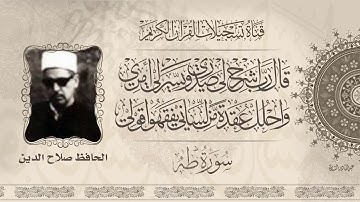 قناة تسجيلات القرآن الكريم
قال رب اشرح لي صدري ويسر لي أمري
واحلل عقدة من لساني يفقهوا قولي
سورة طه
الحافظ صلاح الدين